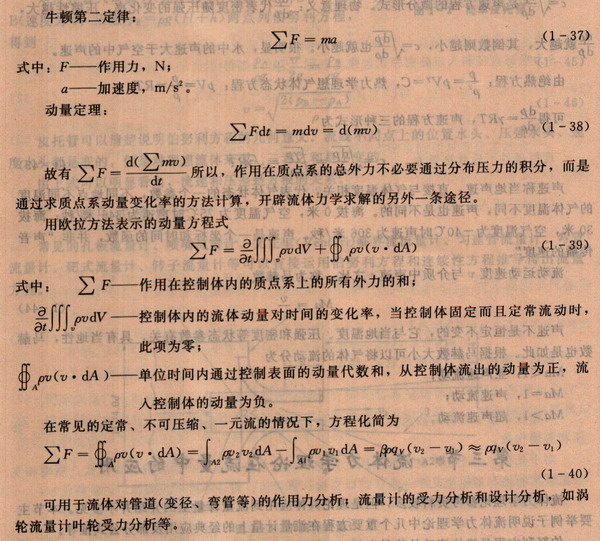 牛顿第二定律：
∑F=ma (1-37)
式中：F——作用力，N；
a——加速度，m/s²。
动量定理：
∑Fdt=mdv=d(mv) (1-38)
故有 ∑F=d(∑mv)/dt 所以，作用在质点系的总外力不必要通过分布压力的积分，而是
通过求质点系动量变化率的方法计算，开辟流体力学求解的另外一条途径。
用欧拉方法表示的动量方程式
∑F=∂/∂t∭ᵥρvdV+∯_Aρv(v·dA) (1-39)
式中： ∑F——作用在控制体内的质点系上的所有外力的和；
∂/∂t∭ᵥρvdV——控制体内的流体动量对时间的变化率，当控制体固定而且定常流动时，
此项为零；
∯_Aρv(v·dA)——单位时间内通过控制表面的动量代数和，从控制体流出的动量为正，流
入控制体的动量为负。
在常见的定常、不可压缩、一元流的情况下，方程化简为
∑F=∯_Aρv(v·dA)=∫_A2 ρv₂v₂dA−∫_A1 ρv₁v₁dA=βρq_V(v₂−v₁)≈ρq_V(v₂−v₁)
(1-40)
可用于流体对管道(变径、弯管等)的作用力分析；流量计的受力分析和设计分析，如涡
轮流量计叶轮受力分析等。